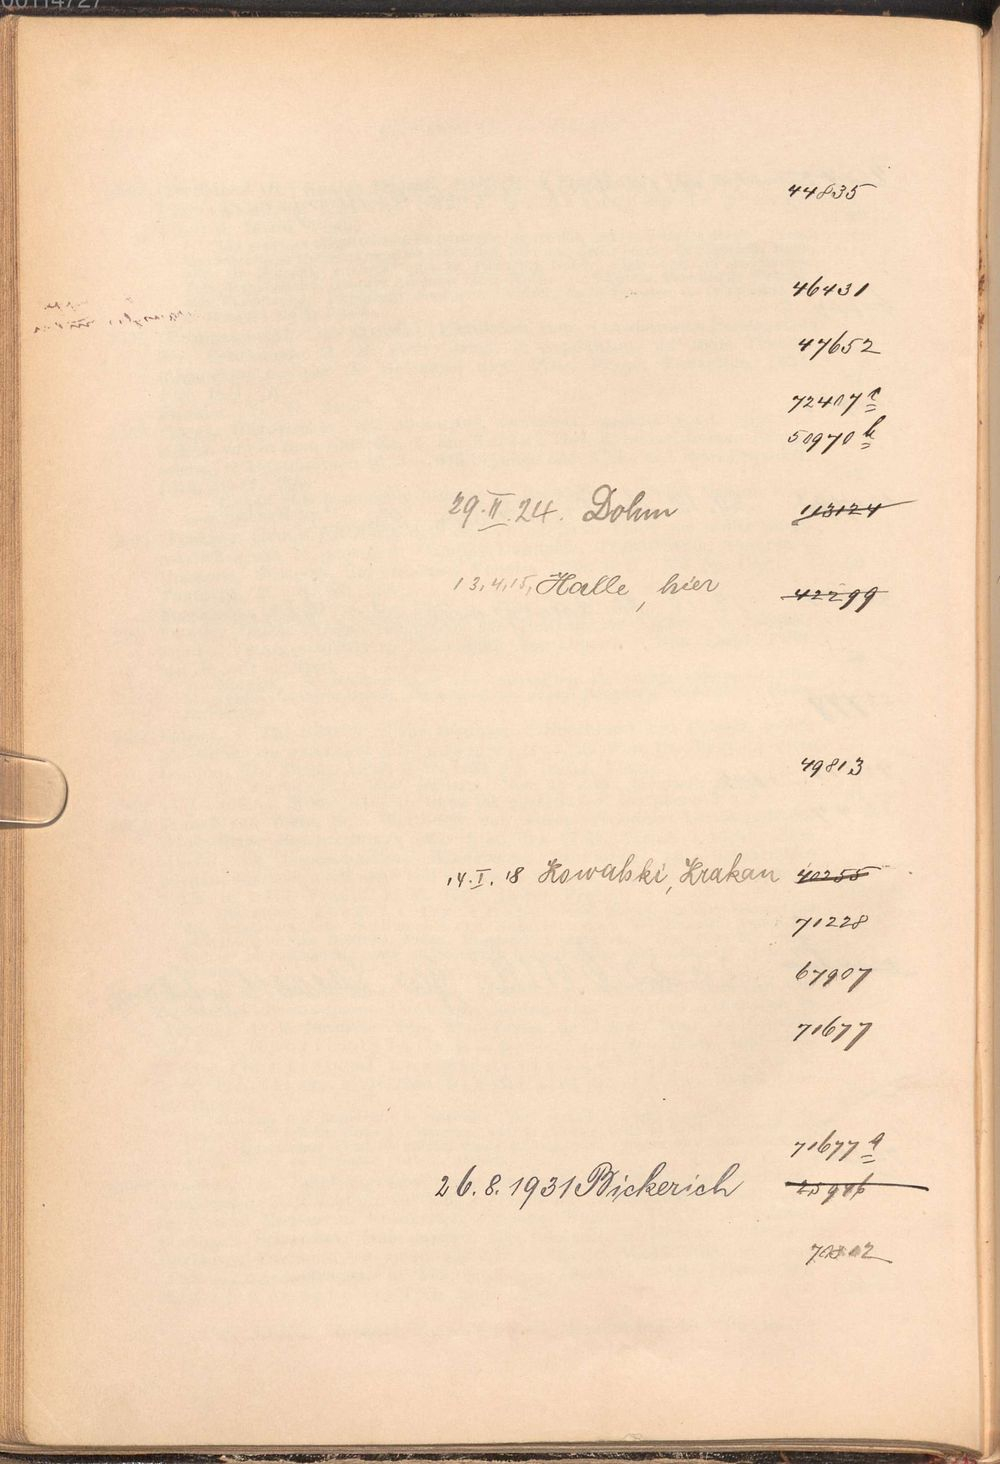 44835
46431
47652
72407 c
50970 b
29.II.24. Dohm 113124
13.4.15, Halle, hier 42299
49813
14.I.18 Kowalski, Krakau 40255
71228
67907
71677
71677 a
26.8.1931 Bickerich